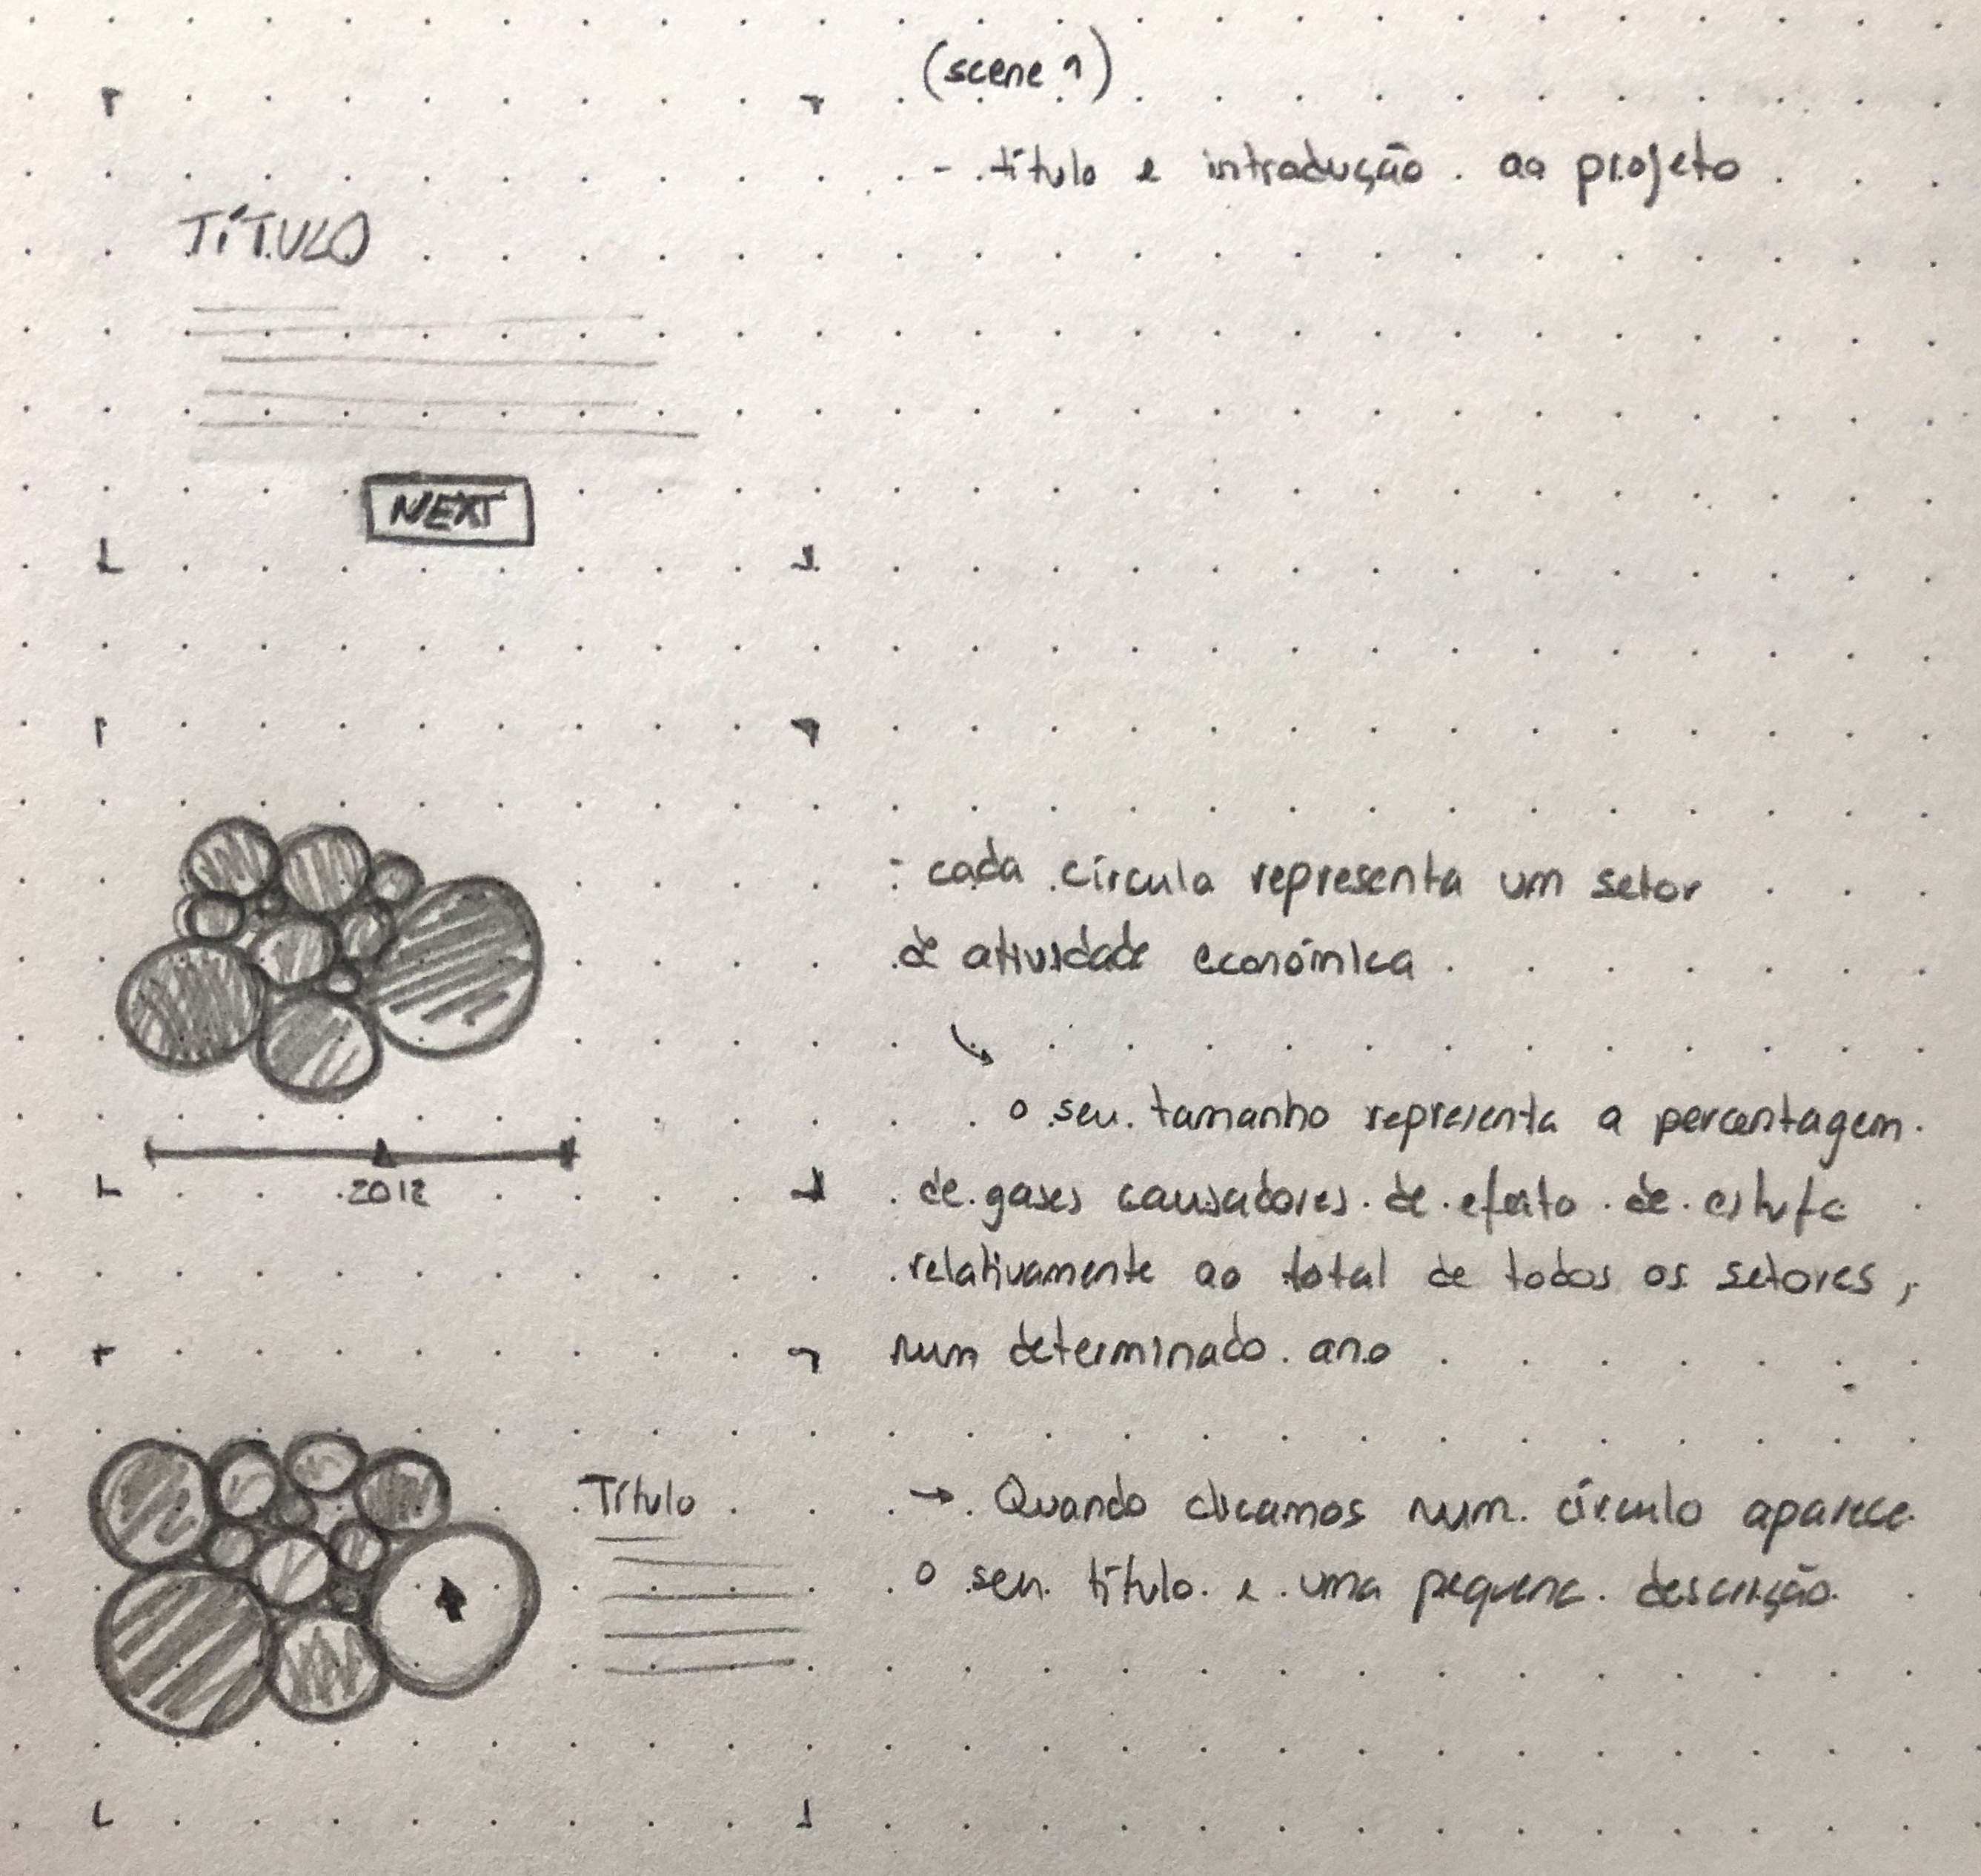 (scene 1)
- título e introdução ao projeto
TÍTULO
NEXT
- cada círculo representa um setor
de atividade económica
o seu tamanho representa a percentagem
de gases causadores de efeito de estufa
relativamente ao total de todos os setores,
num determinado ano
2012
Título
→ Quando clicamos num círculo aparece
o seu título e uma pequena descrição.